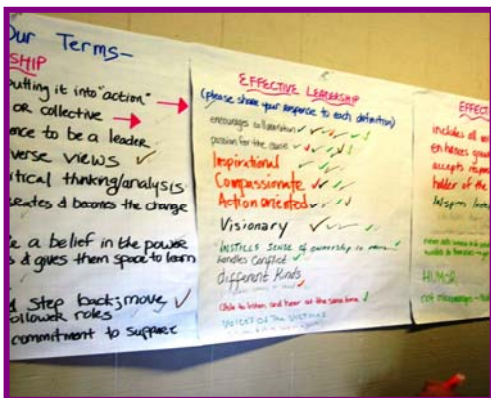 Our Terms-
SHIP
putting it into "action"
or collective
ence to be a leader
verse views
itical thinking/analysis
eates & becomes the change
e a belief in the power
s & gives them space to learn
step back; move
follower roles
commitment to support
EFFECTIVE LEADERSHIP
(please share your response to each definition)
encourages collaboration
passion for the cause
Inspirational
Compassionate
Action oriented
Visionary
INSTILLS SENSE OF ownership in
handles conflict
different Kinds
able to listen and hear at the same time
VOICES OF THE
EFFECT
includes all
enhances
accepts
holder of the
Inspires
HUMOR
not